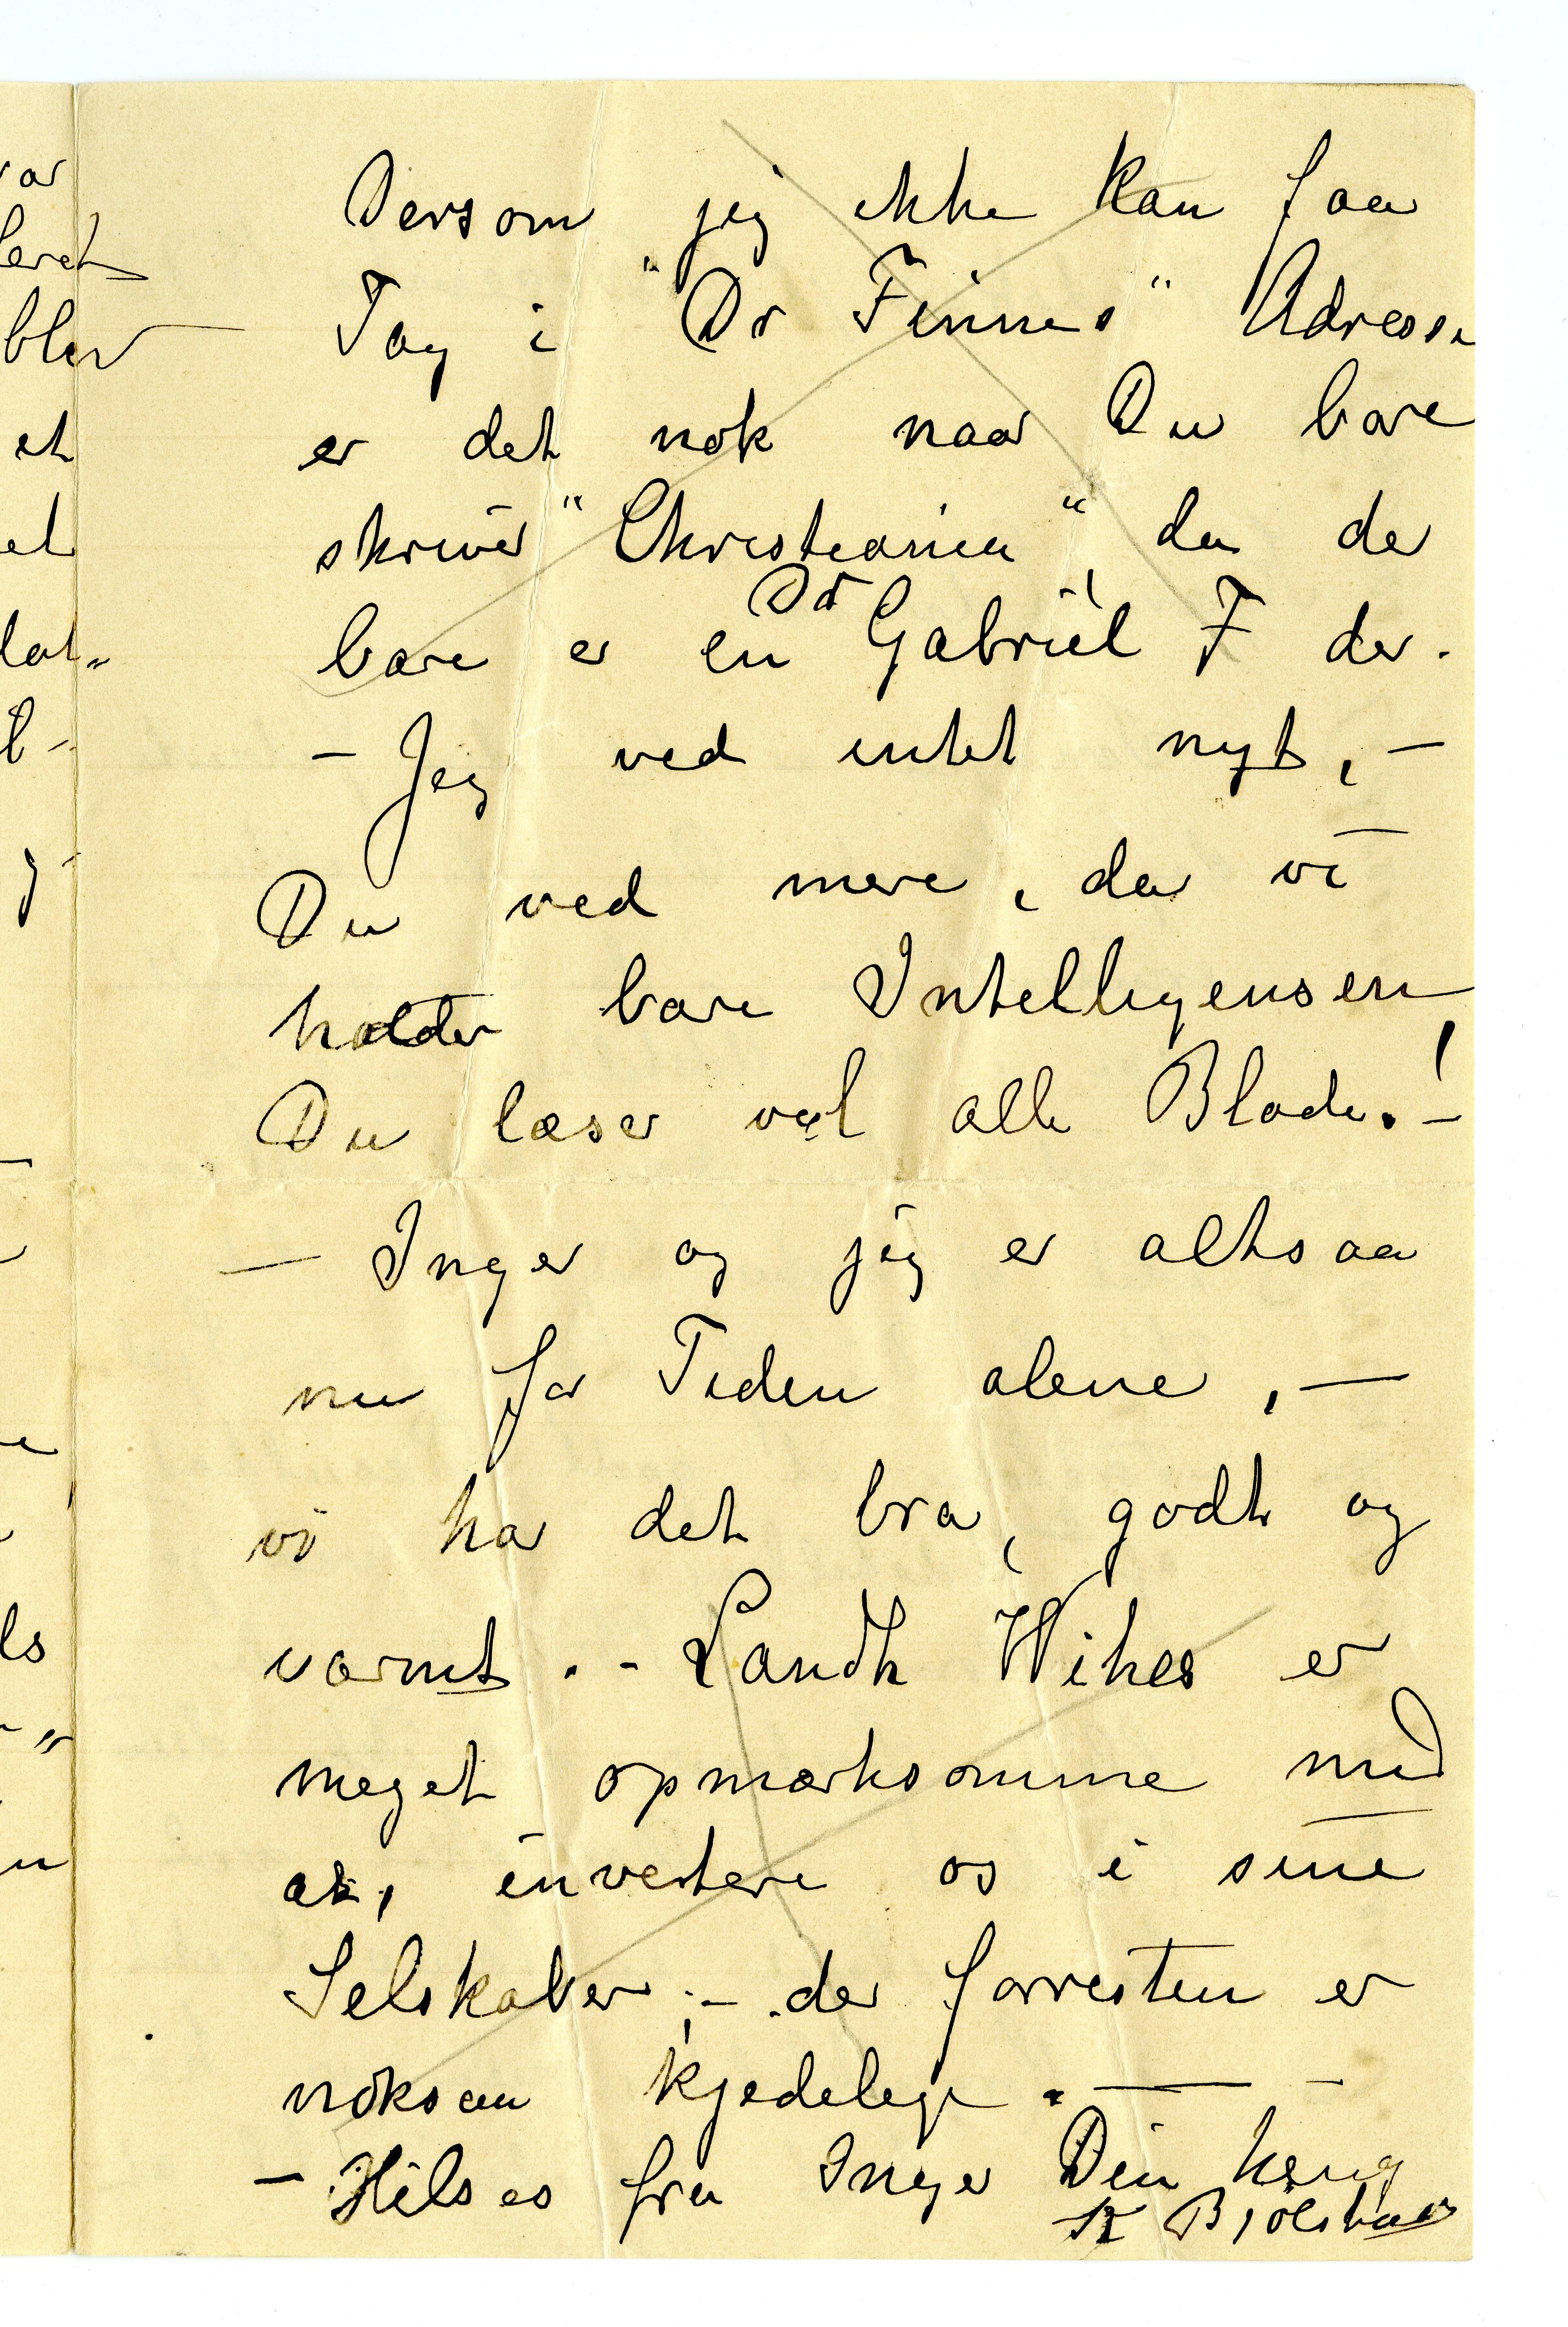 Dersom jeg ikke kan faa
Tag i "Dr Finnes" Adresse
er det nok naar Du bare
skriver "Christiania", da der
bare er en Dr Gabriel F der.
– Jeg ved intet nyt, –
Du ved mere, da vi
holder bare Intelligensen
Du læser vel alle Blade! –
– Inger og jeg er altsaa
nu for Tiden alene, –
vi har det bra, godt og
varmt. – Landh Wikes er
meget opmærksomme med
at, invitere os i sine
Selskaber; – der forresten er
noksaa kjedelige. — –
– Hilses fra Inger Din heng
K Bjølstad
var
blev
et